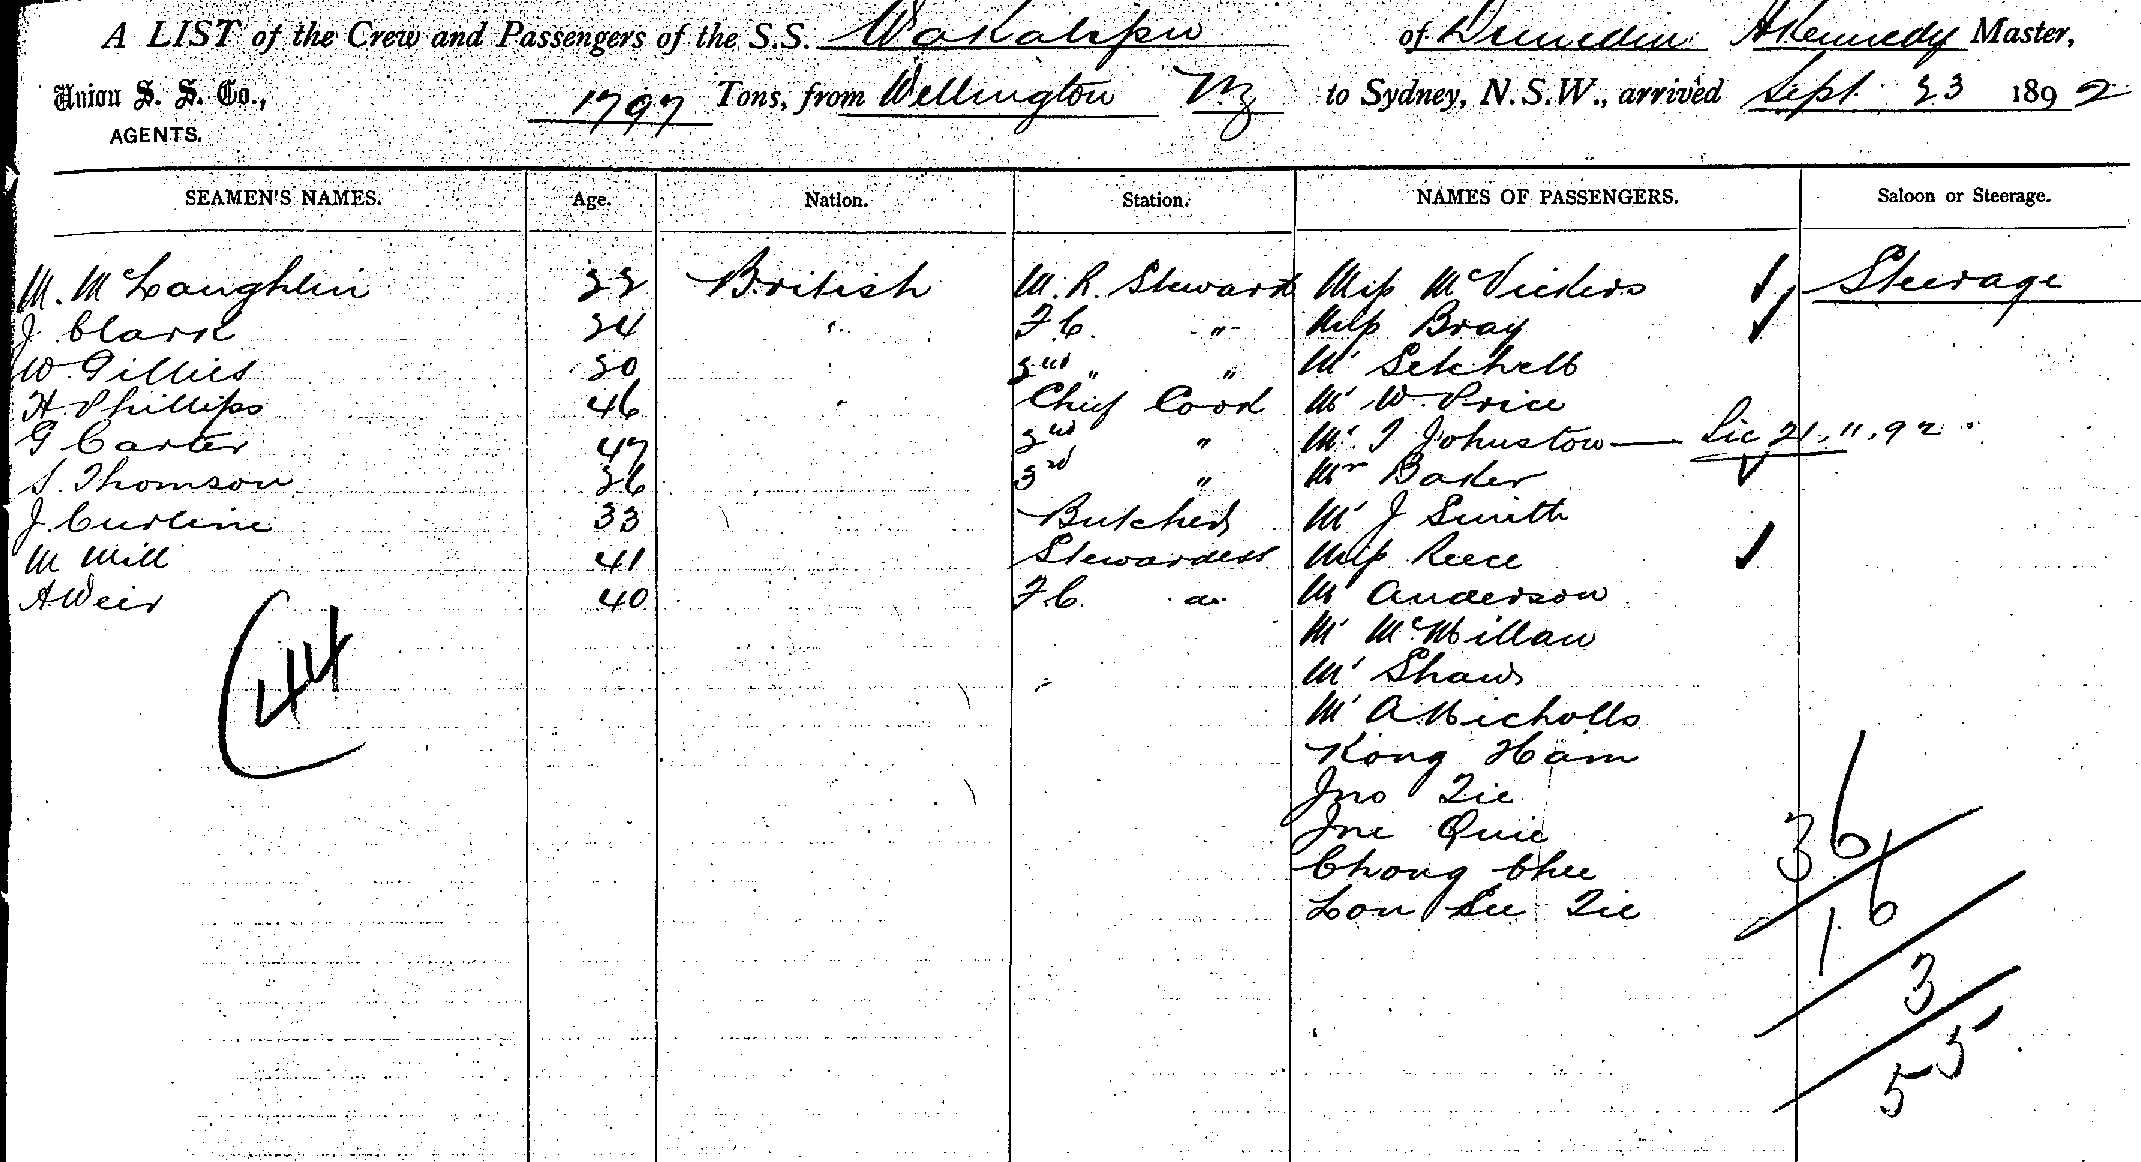 A LIST of the Crew and Passengers of the S.S. Wakatipu of Dunedin A Kennedy Master,
Union S. S. Co., 1797 Tons, from Wellington NZ to Sydney, N.S.W., arrived Sept 23 1892
AGENTS.
SEAMEN'S NAMES. Age. Nation. Station. NAMES OF PASSENGERS. Saloon or Steerage.
M. McLaughlin 22 British M. R. Steward Miss McVickers Steerage
J Clark 24 " F.C. " Miss Bray
W Gillies 20 2nd " " Mr Setchell
H. Phillips 46 " Chief Cook Mr W. Price
G Carter 47 2nd " Mr T Johnston — Lic 21.11.92
S. Thomson 26 3rd " Mr Baker
J. Curline 33 Butcher Mr J Smith
M Mill 41 Stewardess Miss Reece
A Weir 40 F.C. do. Mr Anderson
44 Mr McMillan
Mr Shaw
Mr A Nicholls
Kong Ham
Jno Tie
Jne Quie
Chong Chee
Lou See Tie
36
16
3
55